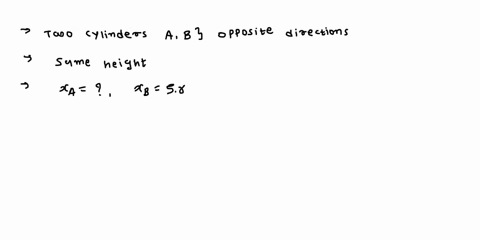 → Two cylinders A, B } opposite directions
→ Same height
→ x_A = ?, x_B = 5.8